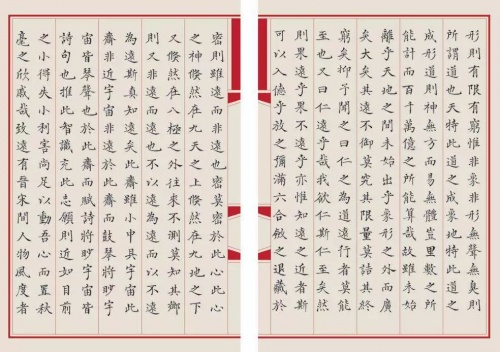 形則有限有窮惟非象非形無聲無臭則
所謂道也天特此道之成象地特此道之
成形道則神無方而易無體豈里數之所
能計而百千萬億之所能算哉故雖未始
離乎天地之間未始出乎形象之外而廣
矣大矣其遠不御莫究其限量莫詰其終
窮矣抑予聞之曰仁之為道遠行者莫能
至也又曰仁遠乎哉我欲仁斯仁至矣然
則果遠乎之近斯
可以入德乎放之彌滿六合斂之退藏於
密則雖遠而非遠也密莫密於此心此心
之神倏然在九天之上倏然在九地之下
又倏然在八極之外往來不測莫知其鄉
則又非遠而遠也不以遠為遠而以不遠
為遠斯真知遠矣此齋雖小中具宇宙此
齋非近宇宙非遠於此齋而鼓琴將眇宇
宙皆琴聲也於此齋而賦詩將眇宇宙皆
詩句也推此智識充此志願則近如目前
之小得失小利害尚足以動吾心而置秋
毫之欣戚哉致遠有晉宋間人物風度者